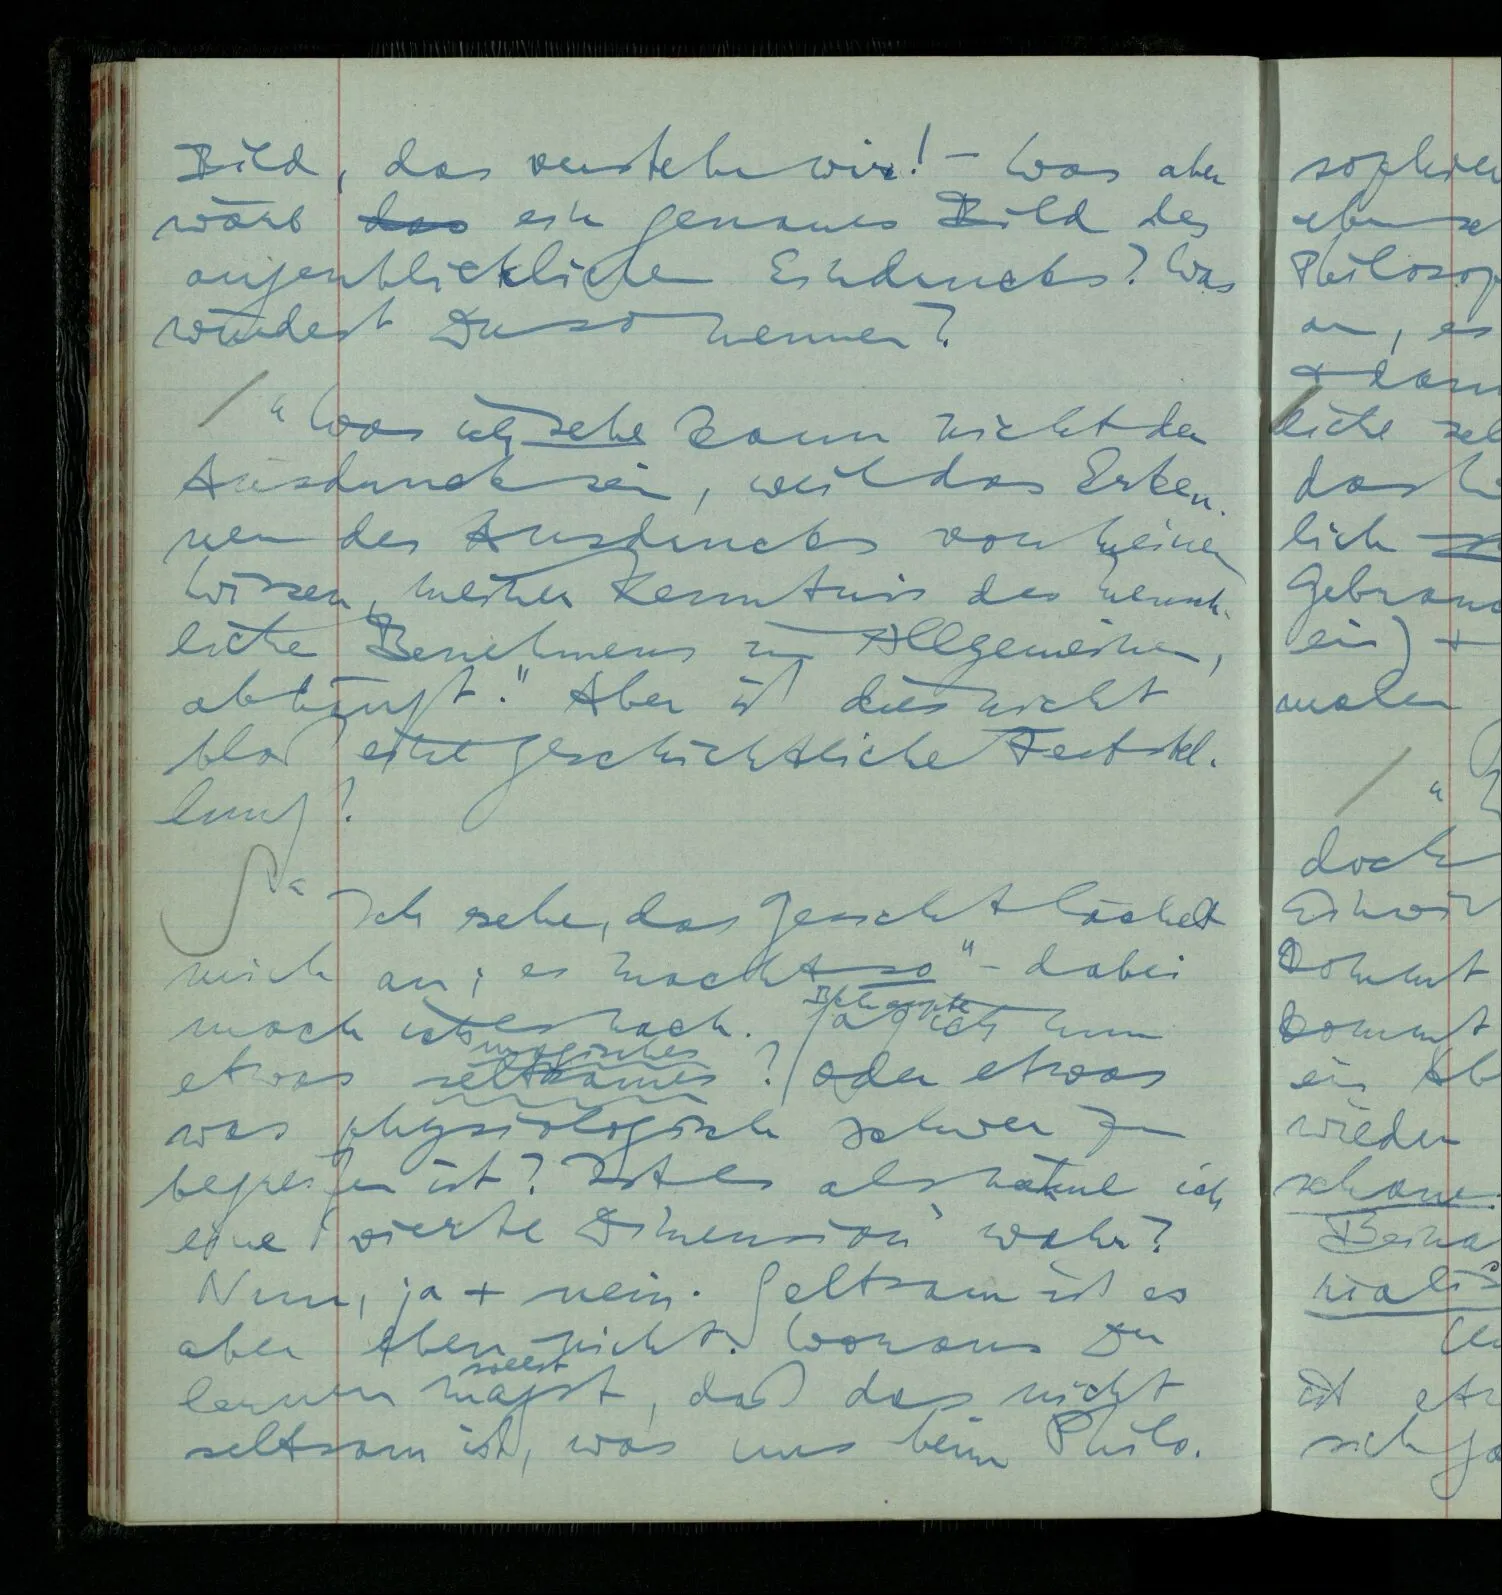 Bild, das verstehn wir! – Was aber
wäre das ein genaues Bild des
augenblicklichen Eindrucks? Was
würdest Du so nennen?
/ "Was ich sehe kann nicht der
Ausdruck sein, weil das Erken-
nen des Ausdrucks von meinem
Wissen, meiner Kenntnis des mensch-
lichen Benehmens im Allgemeinen,
abhängt." Aber ist dies nicht
bloß eine geschichtliche Feststel-
lung?
"Ich sehe, das Gesicht lächelt
mich an; es macht so" – dabei
mach ich es nach. Sag ich nun
etwas seltsames magisches? oder etwas
was physiologisch schwer zu
begreifen ist? Ist es als nähme ich
eine 'vierte Dimension' wahr?
Nun, ja + nein. Seltsam ist es
aber eben nicht. Woraus Du
lernen magst sollst, daß das nicht
seltsam ist, was uns beim Philo-
sophier
eben se
Philosop
an, es
+ dann
liche sel
das
lich
Gebrauc
ein) +
malen
/ "
doch
Einwir
kommt
kommt
ein Ab
wieder
schaue
ist etw
sich